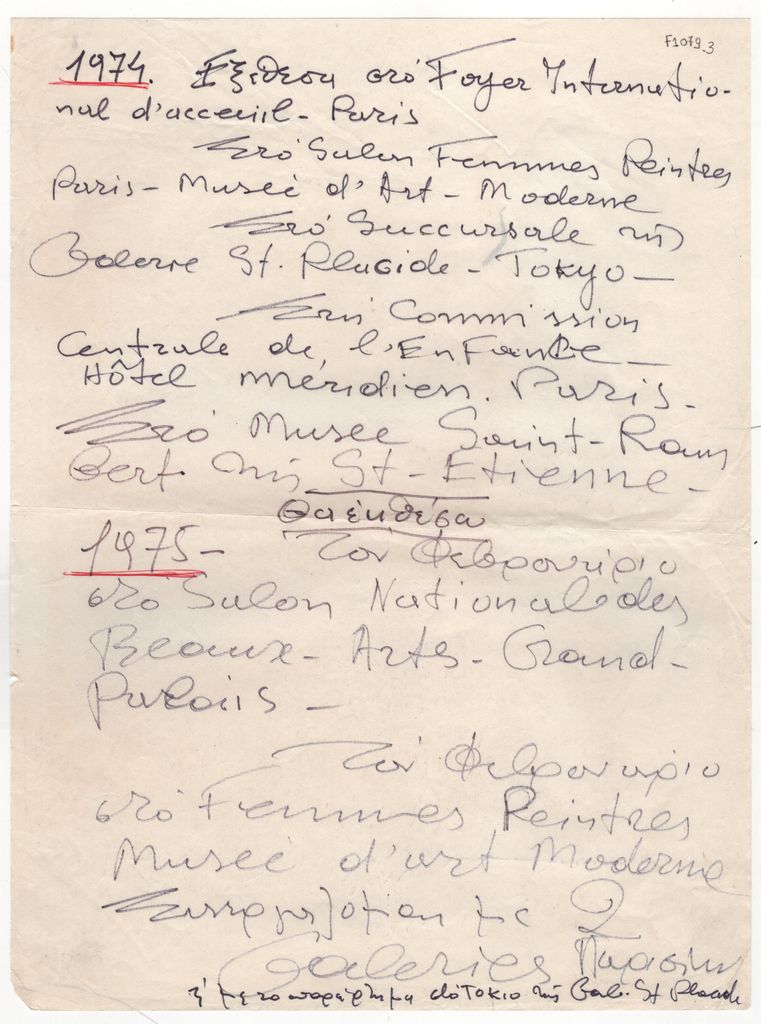 F1079.3
1974. Εξέθεσα στό Foyer Internatio-
nal d'acceuil - Paris
Στό Salon Femmes Peintres
Paris - Museè d'Art - Moderne
Στό Succursale τῆς
Galerie St. Placide - Tokyo -
Στή Commission
Centrale de l'Enfance -
Hôtel Méridien. Paris -
Στό Musee Saint-Ram
Bert τῆς St-Etienne -
Θα εκθέσω
1975 - Τον Φεβρουάριο
στο Salon National des
Beaux-Arts - Grand-
Palais -
Τον Φεβρουάριο
στό Femmes Peintres
Museè d'art Moderne
με 2
Galeries Παρισιού
ή με το παράρτημα στο Τokio τῆς Gal. St Placide